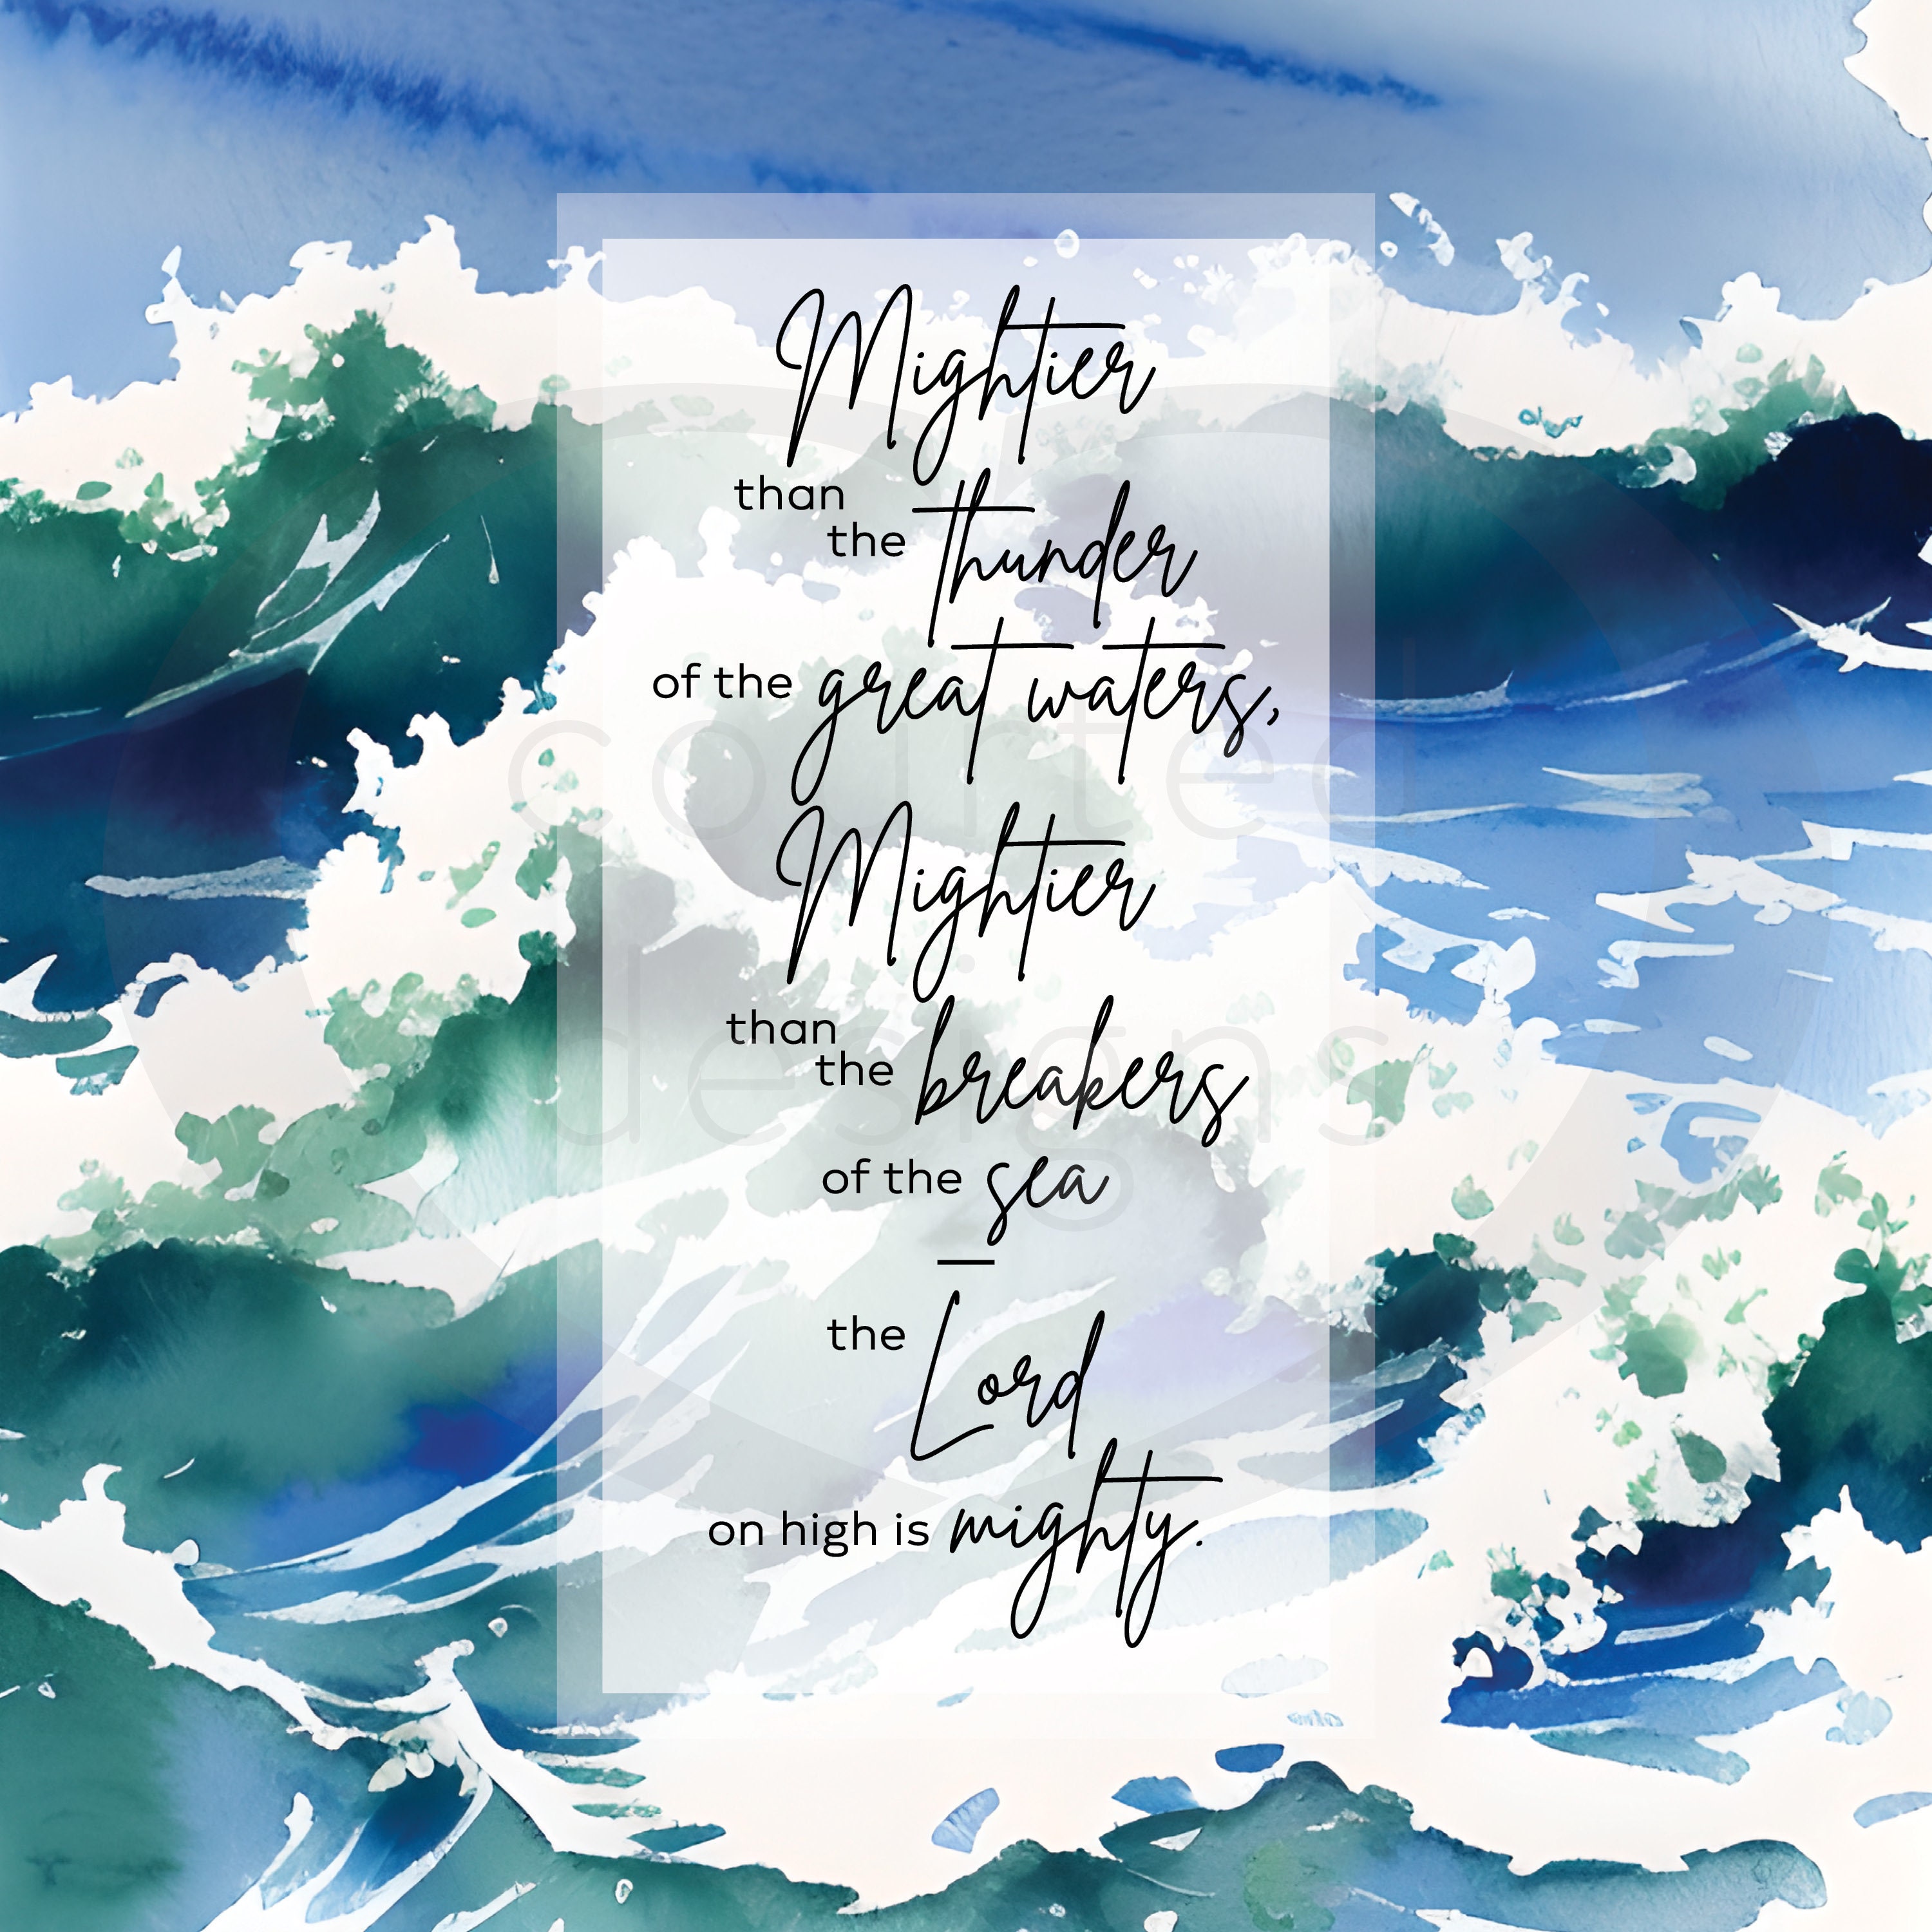 Mightier
than
the thunder
of the great waters,
Mightier
than
the breakers
of the sea
—
the Lord
on high is mighty.
counted
designs